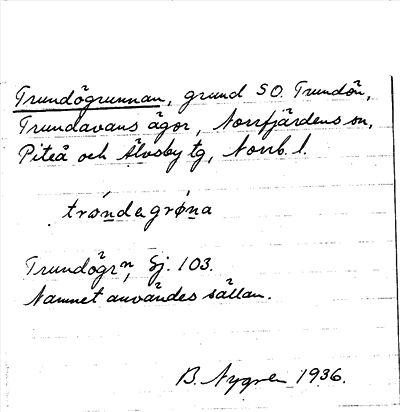 Trundögrunnan, grund SO. Trundön,
Trundavans ägor, Norrfjärdens sn,
Piteå och Älvsby tg, Norrb. l.
trøndagrøna
Trundögrⁿ, Sj. 103.
Namnet användes sällan.
B. Nygren 1936.